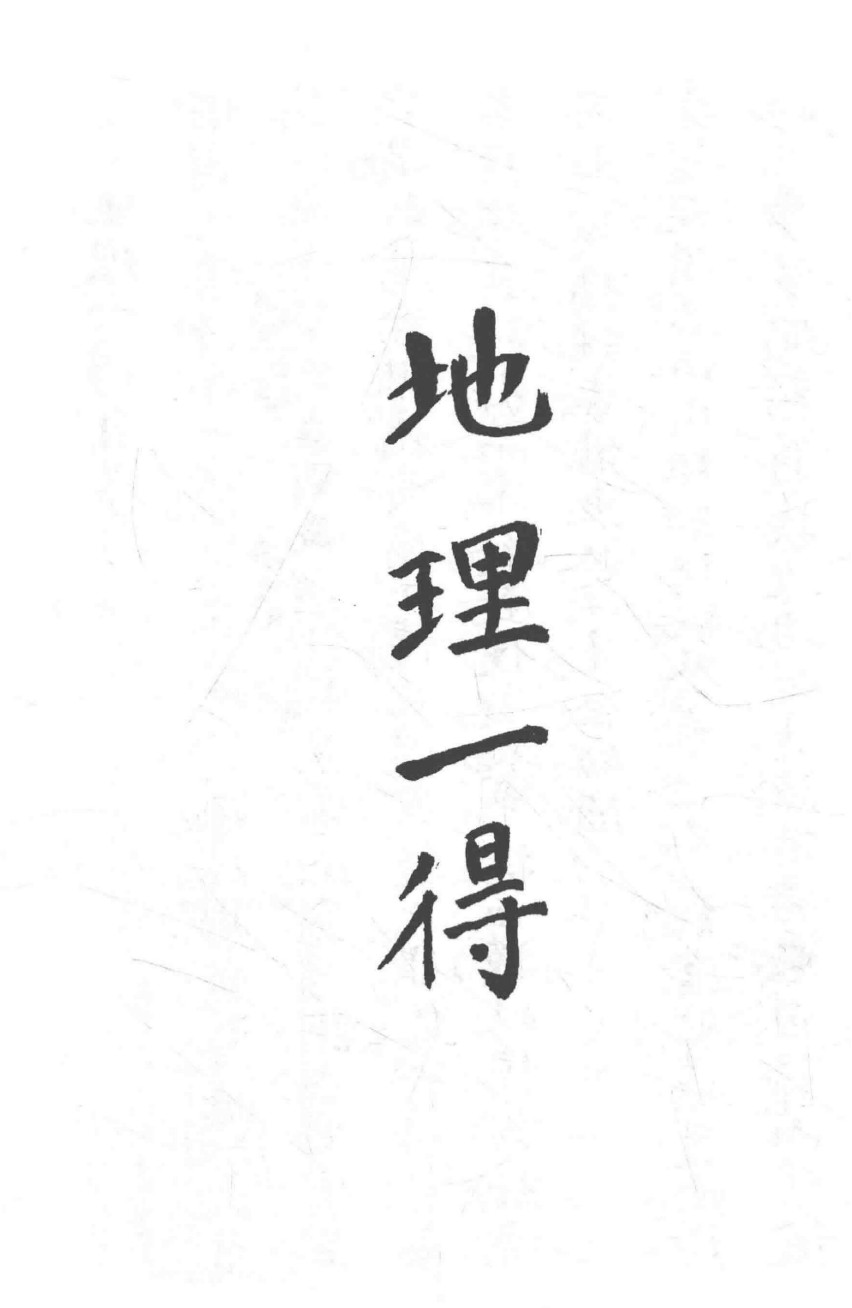 地理一得